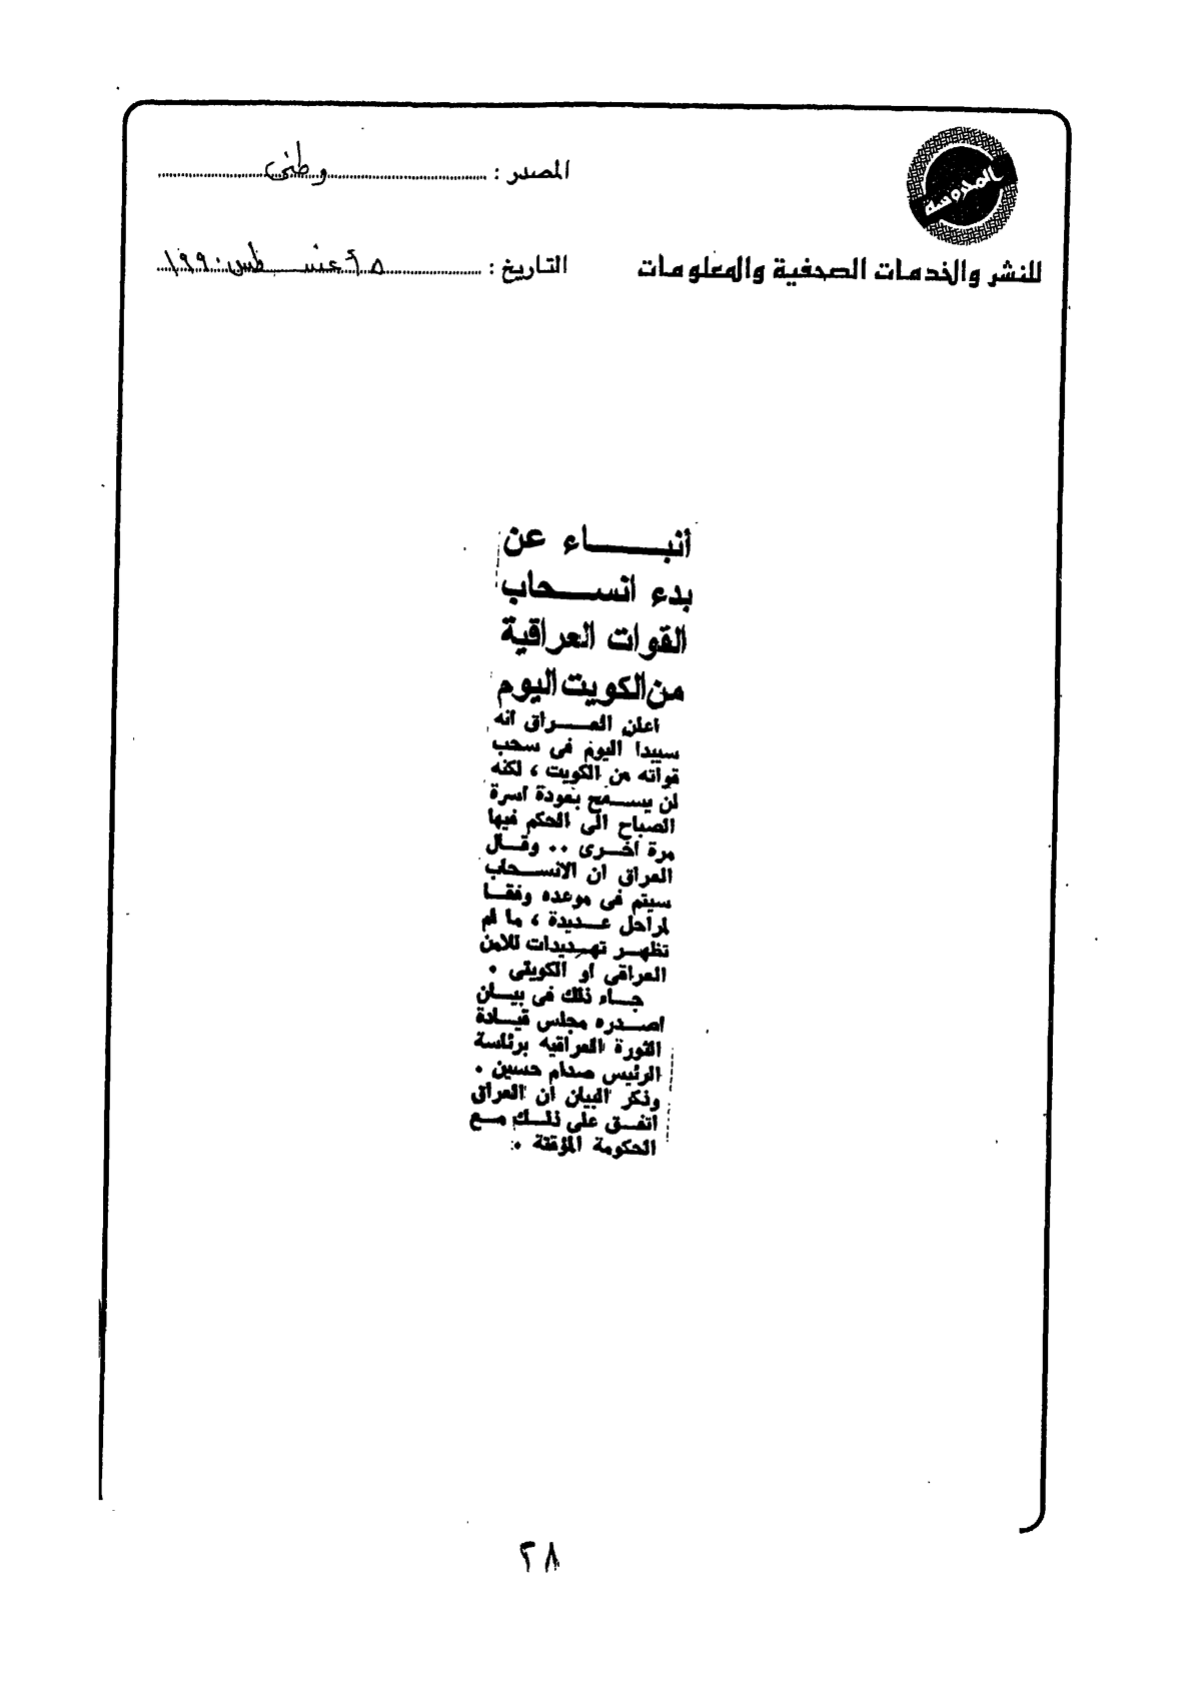 المحروسة
للنشر والخدمات الصحفية والمعلومات
المصدر : وطنى
التاريخ : ٥ أغسطس ١٩٩٠
أنبـــاء عن
بدء انســحاب
القوات العراقية
من الكويت اليوم
اعلن العـــراق انه
سيبدا اليوم فى سحب
قواته من الكويت ، لكنه
لن يســمح بعودة اسرة
الصباح الى الحكم فيها
مرة اخـــرى .. وقــال
العراق ان الانســحاب
سيتم فى موعده وفقــا
لمراحل عــديدة ، ما لم
تظهــر تهــديدات للامن
العراقى او الكويتى .
جــاء ذلك فى بيــان
اصــدره مجلس قيــادة
الثورة العراقيه برئاسة
الرئيس صدام حسين .
وذكر البيان ان العراق
اتفــق على ذلــك مــع
الحكومة المؤقتة .
٢٨